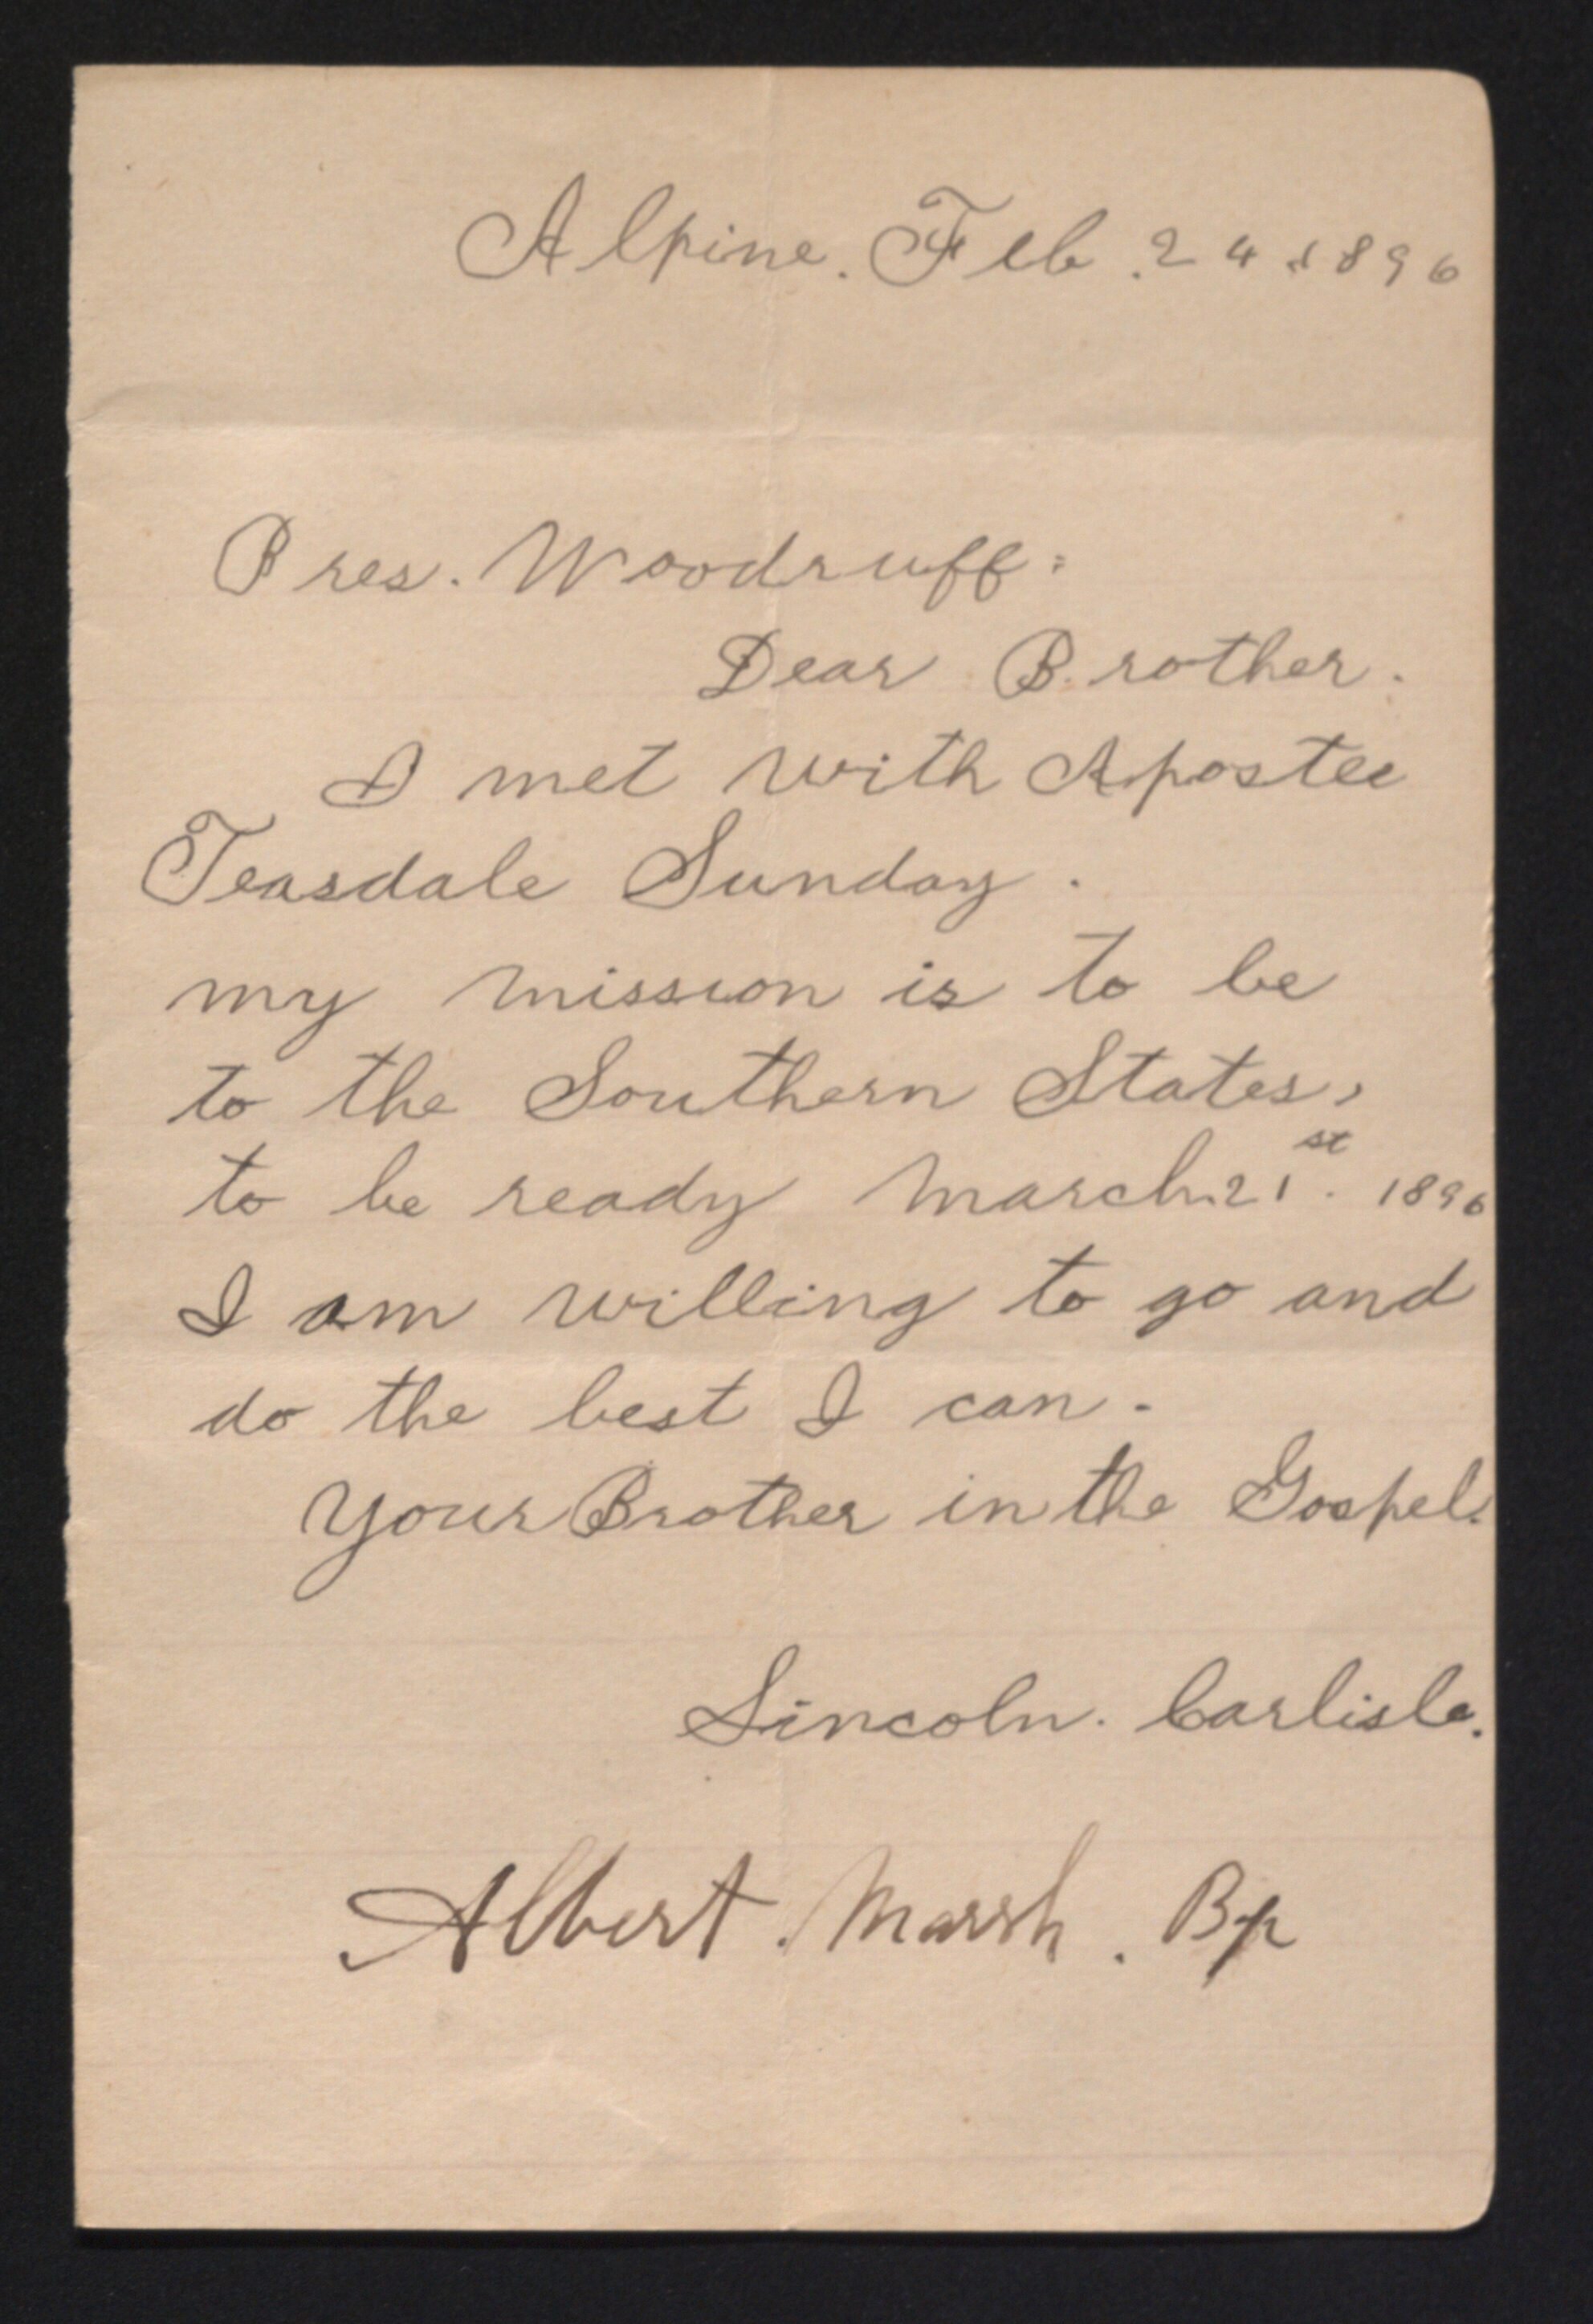 Alpine. Feb. 24 1896
Pres. Woodruff:
Dear Brother.
I met with Apostle
Teasdale Sunday.
my mission is to be
to the Southern States,
to be ready March. 21st. 1896
I am willing to go and
do the best I can.
Your Brother in the Gospel.
Lincoln. Carlisle.
Albert. Marsh. Bp